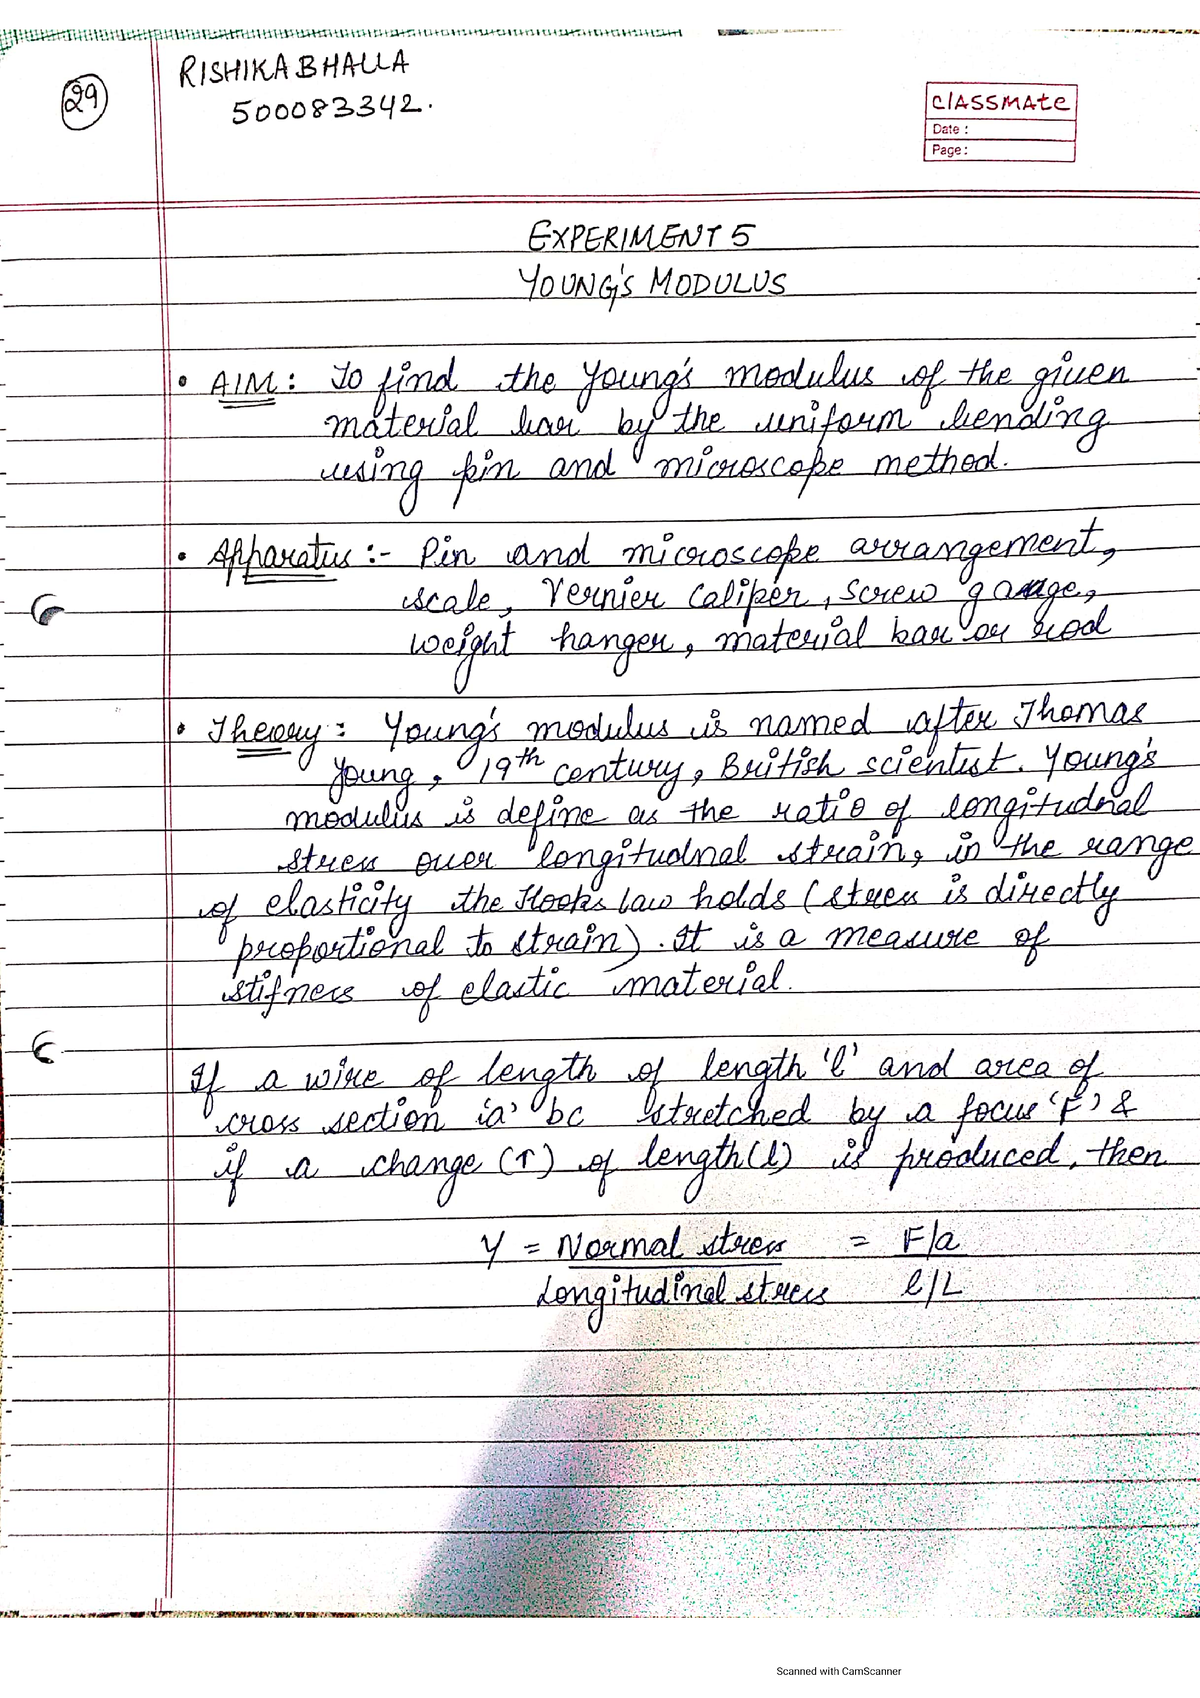 29
RISHIKA BHALLA
500083342.
CLASSMATE
Date :
Page :
EXPERIMENT 5
YOUNG'S MODULUS
• AIM: To find the Young's modulus of the given
material bar by the uniform bending
using pin and microscope method.
• Apparatus :- Pin and microscope arrangement,
scale, Vernier Caliper, Screw gauge,
weight hanger, material bar or rod
• Theory : Young's modulus is named after Thomas
Young, 19th century, British scientist. Young's
modulus is define as the ratio of longitudnal
stress over longitudnal strain, in the range
of elasticity the Hooks law holds (stress is directly
proportional to strain). It is a measure of
stifness of elastic material.
If a wire of length of length 'l' and area of
cross section 'a' be stretched by a focus 'F' &
if a change (↑) of length (l) is produced, then
Y = Normal stress = F/a
Longitudinal stress l/L
Scanned with CamScanner